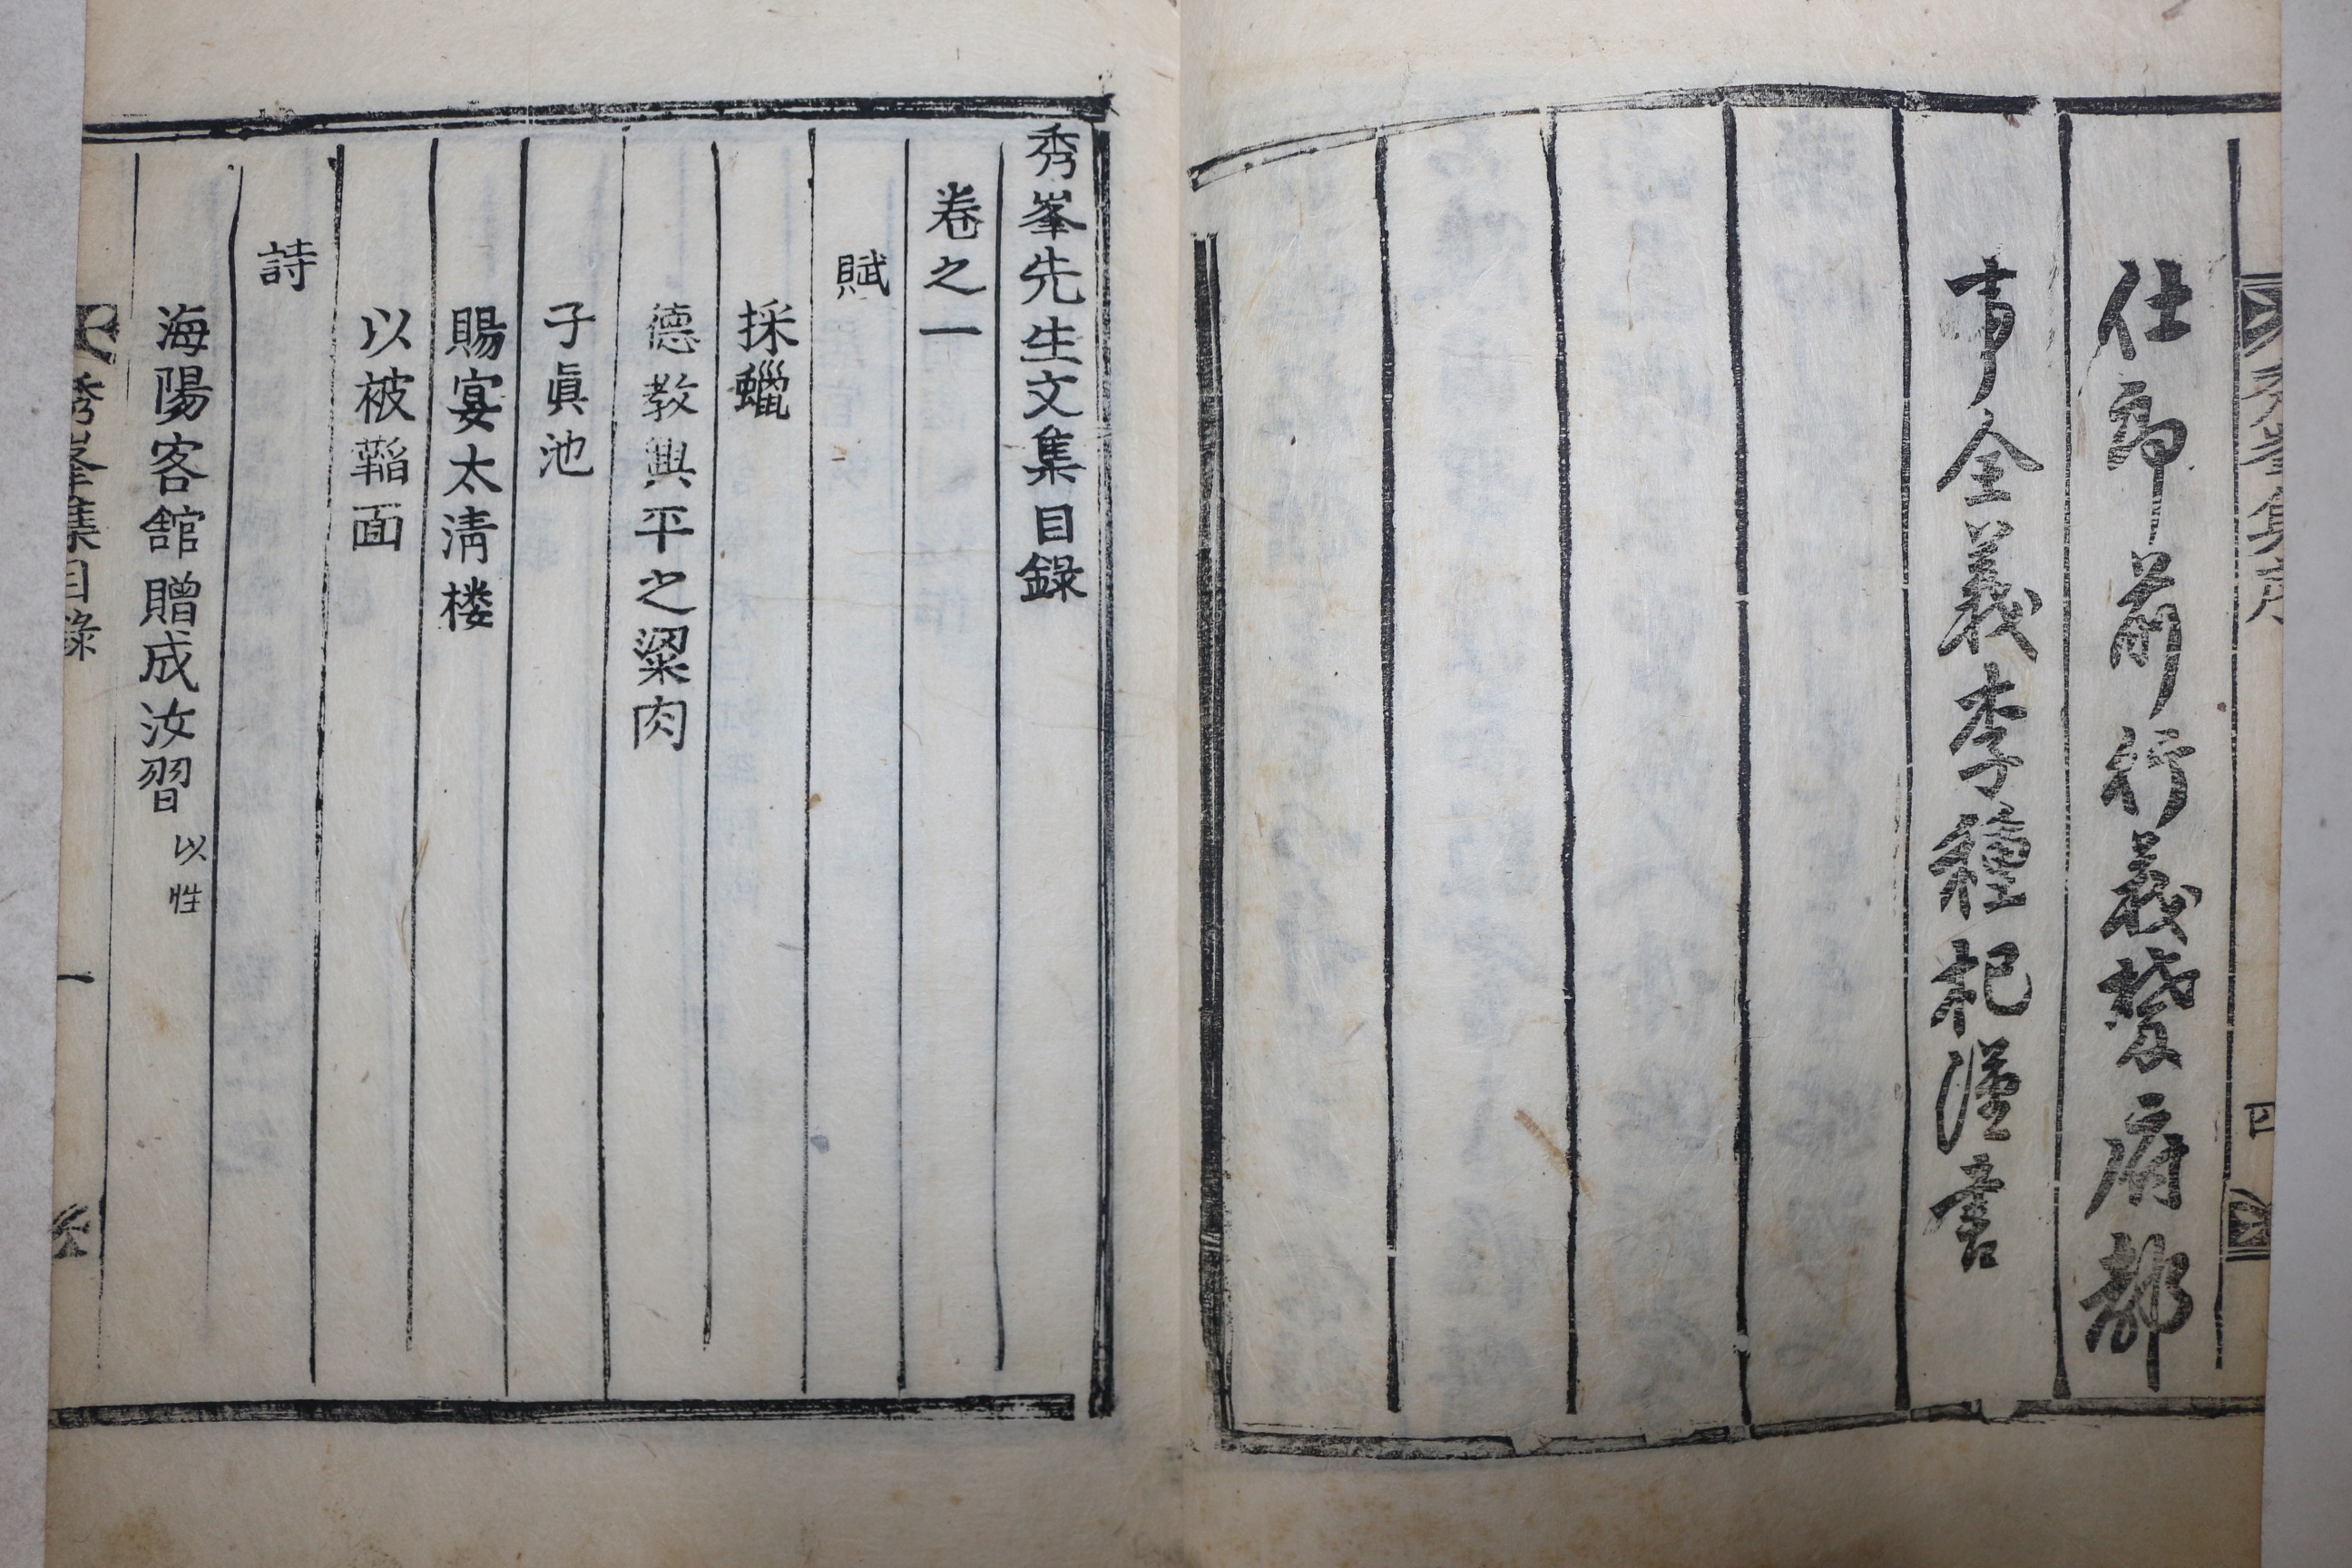 仕郎前行義禁府都
事全義李種杞謹書
秀峯集序
四
秀峯先生文集目錄
卷之一
賦
採蠟
德敎興平之粱肉
子眞池
賜宴太淸楼
以被韜面
詩
海陽客舘贈成汝習以性
秀峯集目錄
一